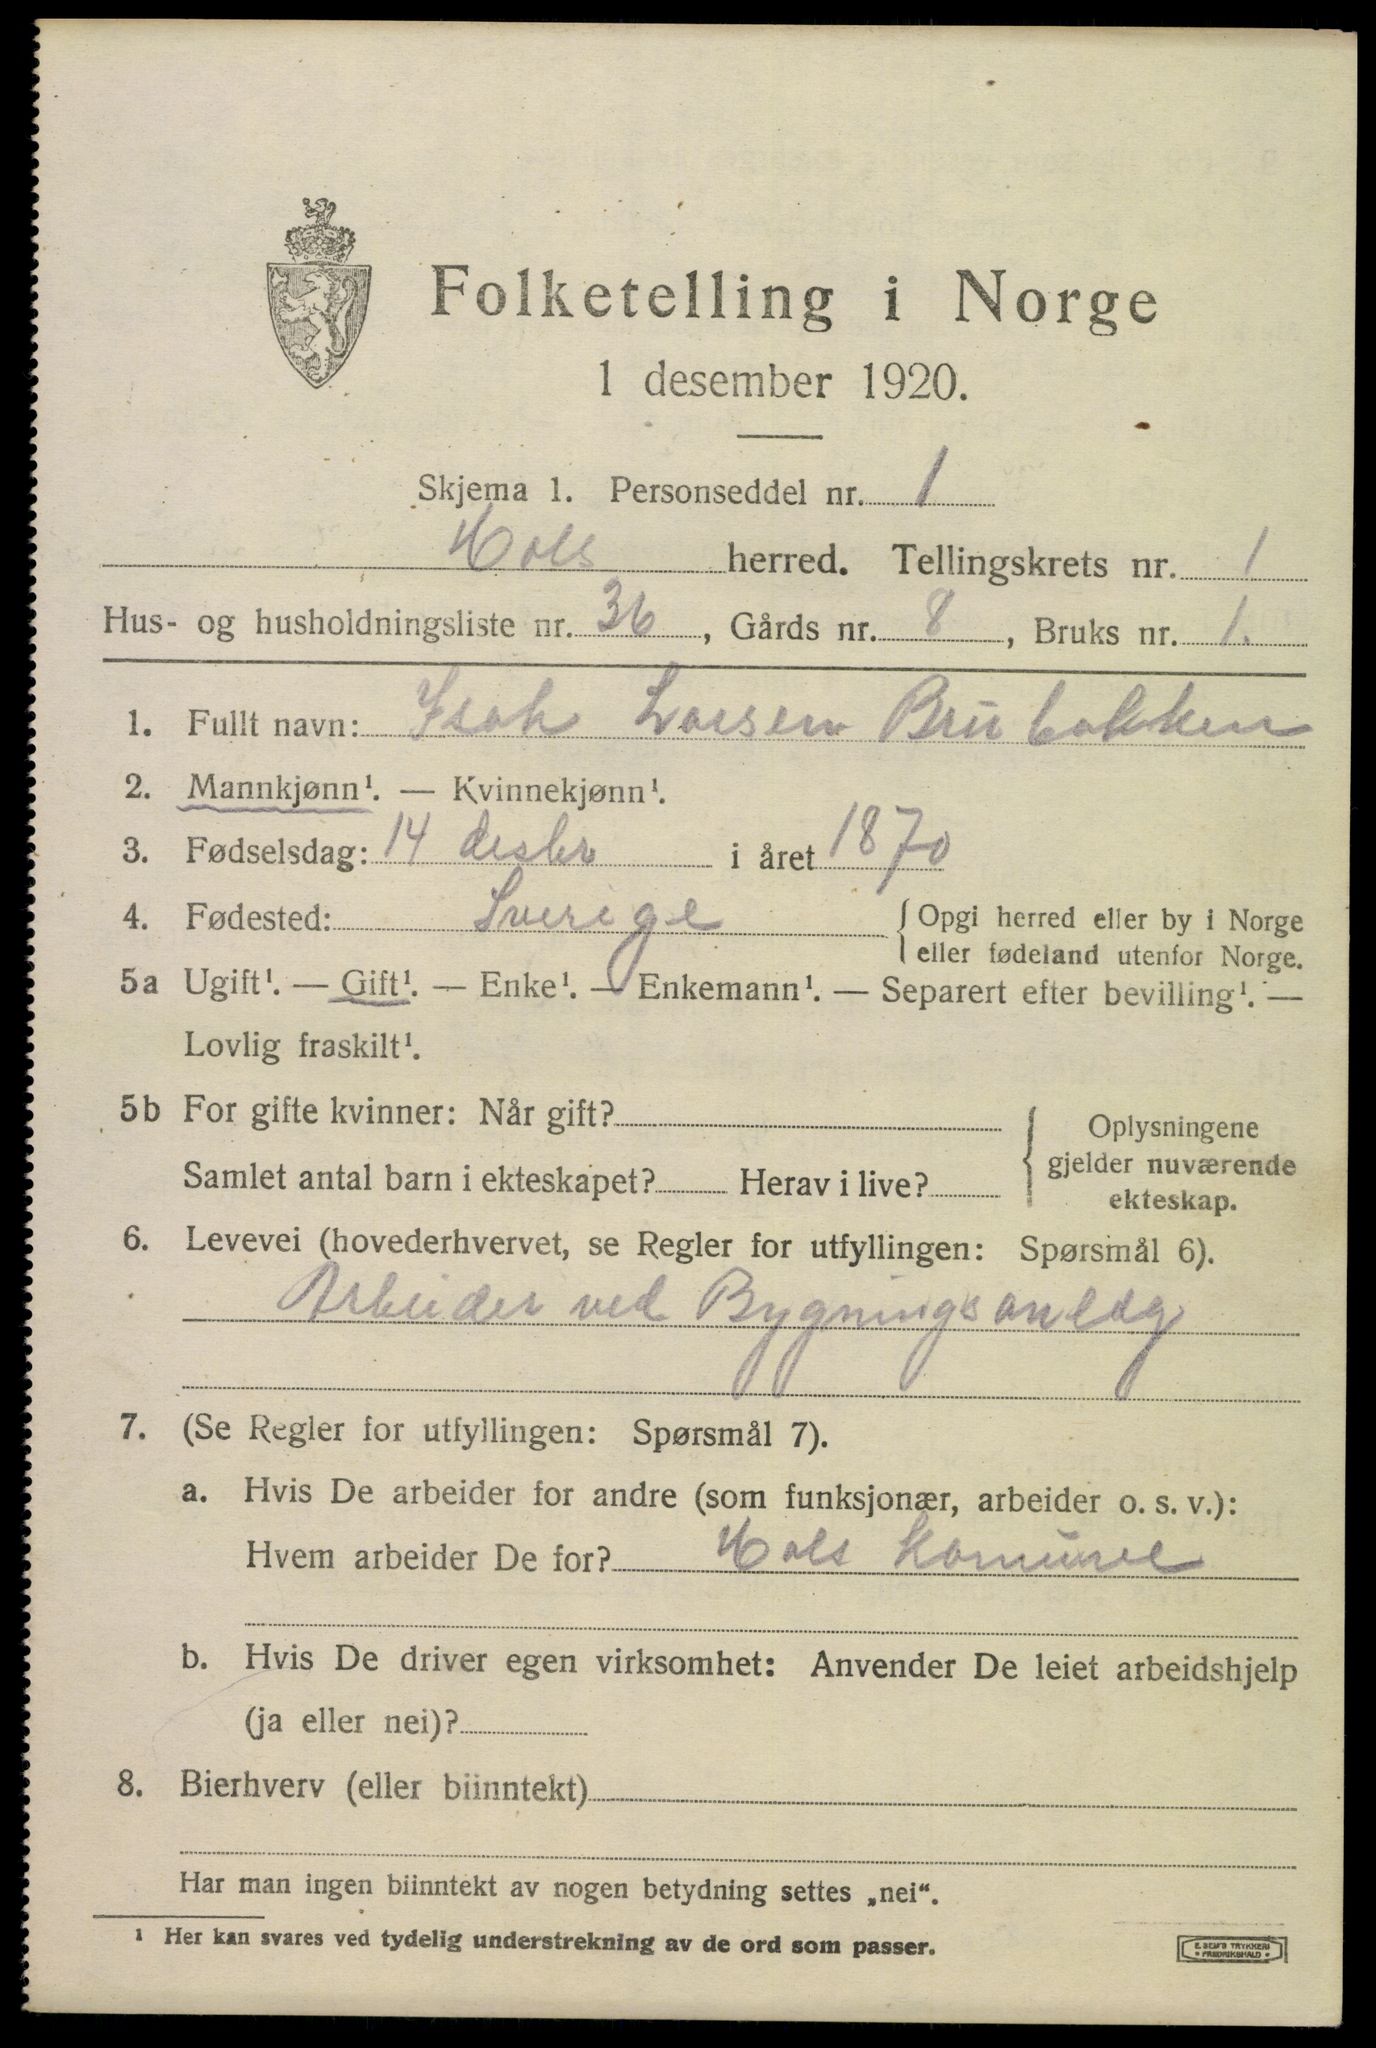 Folketelling i Norge
1 desember 1920.
Skjema 1. Personseddel nr. 1
Hols herred. Tellingskrets nr. 1
Hus- og husholdningsliste nr. 36, Gårds nr. 8, Bruks nr. 1.
1. Fullt navn: Isak Larsen Brubakken
2. Mannkjønn¹. — Kvinnekjønn¹.
3. Fødselsdag: 14 desbr i året 1870
4. Fødested: Sverige {Opgi herred eller by i Norge
eller fødeland utenfor Norge.
5a Ugift¹. — Gift¹. — Enke¹. — Enkemann¹. — Separert efter bevilling¹. —
Lovlig fraskilt¹.
5b For gifte kvinner: Når gift?
Samlet antal barn i ekteskapet? Herav i live?
{Oplysningene
gjelder nuværende
ekteskap.
6. Levevei (hovederhvervet, se Regler for utfyllingen: Spørsmål 6).
Arbeider ved Bygningsanlæg
7. (Se Regler for utfyllingen: Spørsmål 7).
a. Hvis De arbeider for andre (som funksjonær, arbeider o. s. v.):
Hvem arbeider De for? Hols Komune
b. Hvis De driver egen virksomhet: Anvender De leiet arbeidshjelp
(ja eller nei)?
8. Bierhverv (eller biinntekt)
Har man ingen biinntekt av nogen betydning settes „nei“.
¹ Her kan svares ved tydelig understrekning av de ord som passer.
E. SEM'S TRYKKERI
• FREDRIKSHALD •